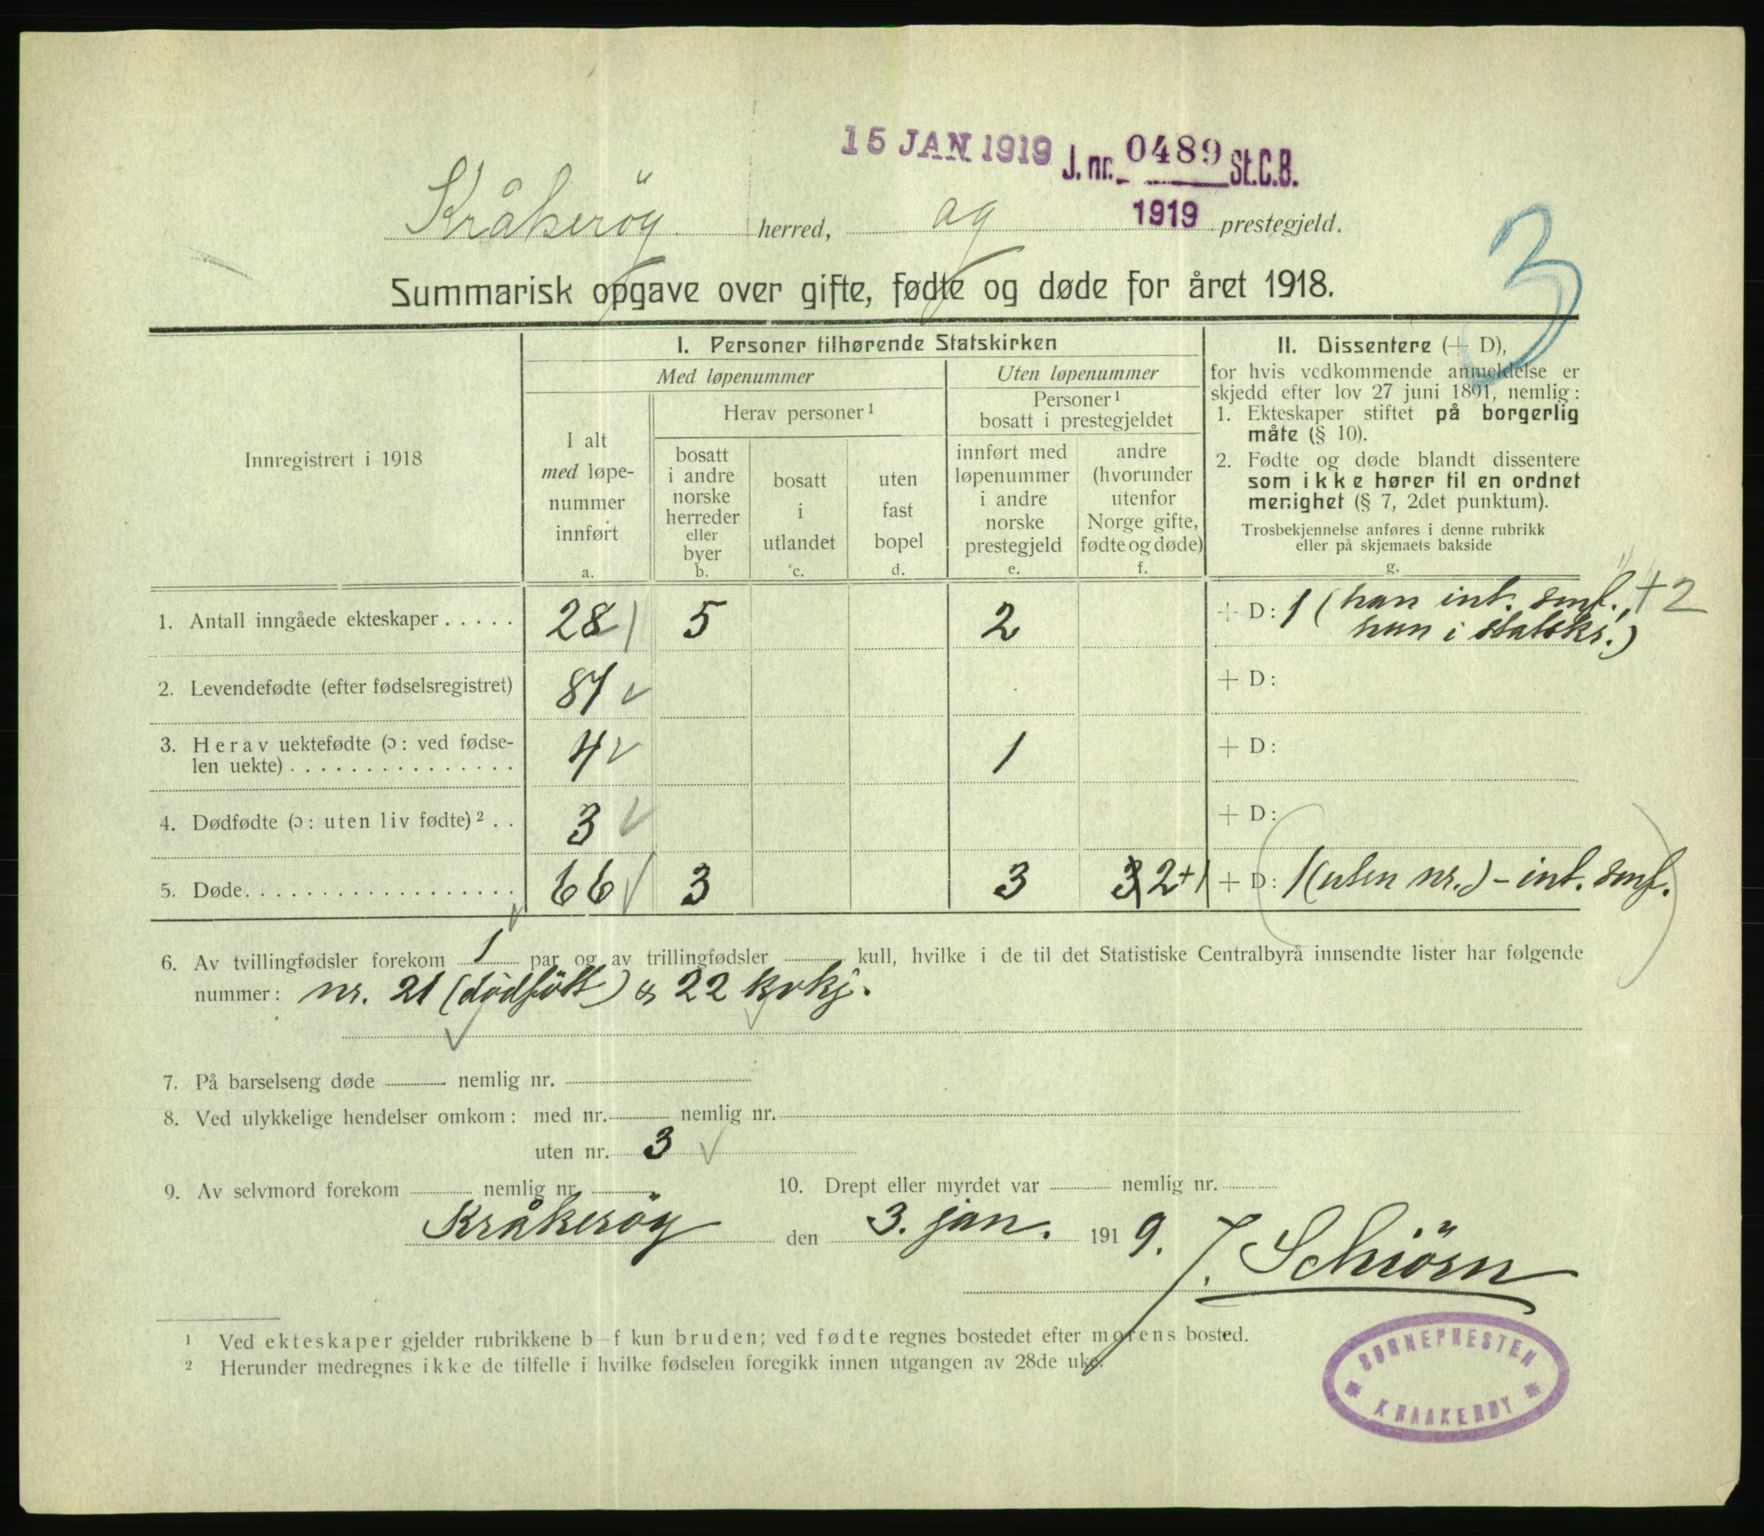 15 JAN 1919 J. nr. 0489 St.C.B.
1919
3
Kråkerøy herred, og prestegjeld.
Summarisk opgave over gifte, fødte og døde for året 1918.
Innregistrert i 1918
I. Personer tilhørende Statskirken
Med løpenummer
Uten løpenummer
I alt
med løpe-
nummer
innført
a.
Herav personer ¹
bosatt
i andre
norske
herreder
eller
byer
b.
bosatt
i
utlandet
c.
uten
fast
bopel
d.
Personer ¹
bosatt i prestegjeldet
innført med
løpenummer
i andre
norske
prestegjeld
e.
andre
(hvorunder
utenfor
Norge gifte,
fødte og døde)
f.
II. Dissentere (+ D),
for hvis vedkommende anmeldelse er
skjedd efter lov 27 juni 1891, nemlig:
1. Ekteskaper stiftet på borgerlig
måte (§ 10).
2. Fødte og døde blandt dissentere
som ikke hører til en ordnet
menighet (§ 7, 2det punktum).
Trosbekjennelse anføres i denne rubrikk
eller på skjemaets bakside
g.
1. Antall inngåede ekteskaper ..... 28 5 2 + D: 1 (han int. smf., +2
hun i statsks.)
2. Levendefødte (efter fødselsregistret) 87 + D:
3. Herav uektefødte (ɔ: ved fødse-
len uekte) ............... 4 1 + D:
4. Dødfødte (ɔ: uten liv fødte) ² .. 3 + D:
5. Døde .................. 66 3 3 3 2+1 + D: 1 (uten nr.) – int. smf.
6. Av tvillingfødsler forekom 1 par og av trillingfødsler kull, hvilke i de til det Statistiske Centralbyrå innsendte lister har følgende
nummer: nr. 21 (dödfött) & 22 kvkj.
7. På barselseng døde nemlig nr.
8. Ved ulykkelige hendelser omkom: med nr. nemlig nr.
uten nr. 3
9. Av selvmord forekom nemlig nr. 10. Drept eller myrdet var nemlig nr.
Kråkerøy den 3. jan. 1919.
J. Schiörn
¹ Ved ekteskaper gjelder rubrikkene b–f kun bruden; ved fødte regnes bostedet efter morens bosted.
² Herunder medregnes ikke de tilfelle i hvilke fødselen foregikk innen utgangen av 28de uke.
SOGNEPRESTEN
KRAAKERØY